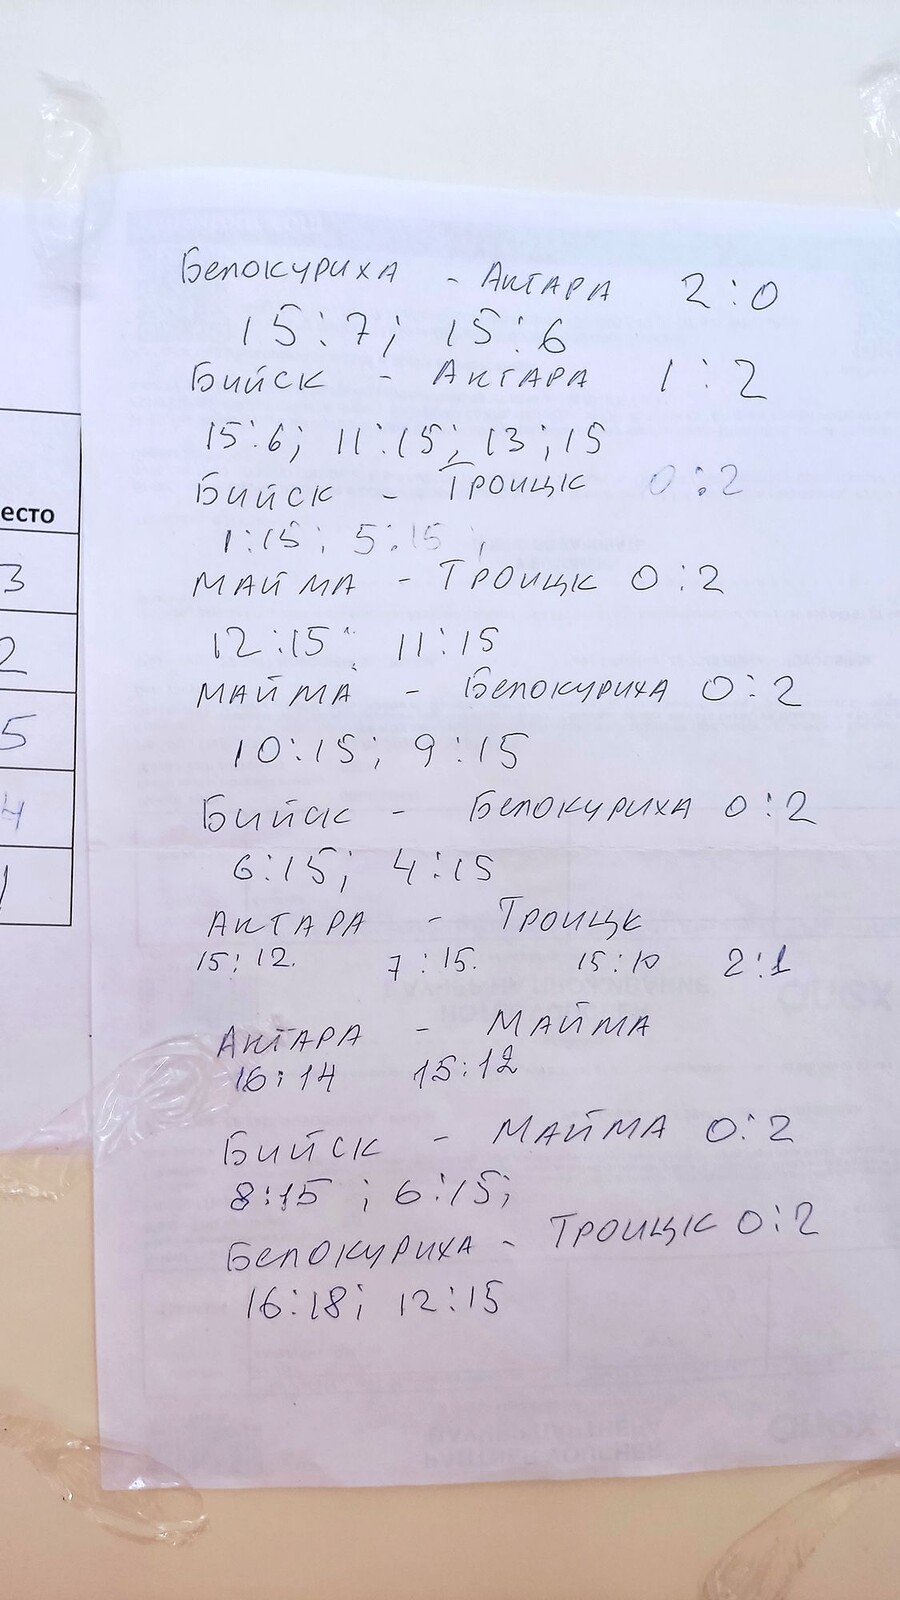 есто
3
2
5
4
1
Белокуриха - Актара 2:0
15:7; 15:6
Бийск - Актара 1:2
15:6; 11:15; 13;15
Бийск - Троицк 0:2
1:15; 5:15;
Майма - Троицк 0:2
12:15; 11:15
Майма - Белокуриха 0:2
10:15; 9:15
Бийск - Белокуриха 0:2
6:15; 4:15
Актара - Троицк
15:12. 7:15. 15:10 2:1
Актара - Майма
16:14 15:12
Бийск - Майма 0:2
8:15 ; 6:15;
Белокуриха - Троицк 0:2
16:18; 12:15